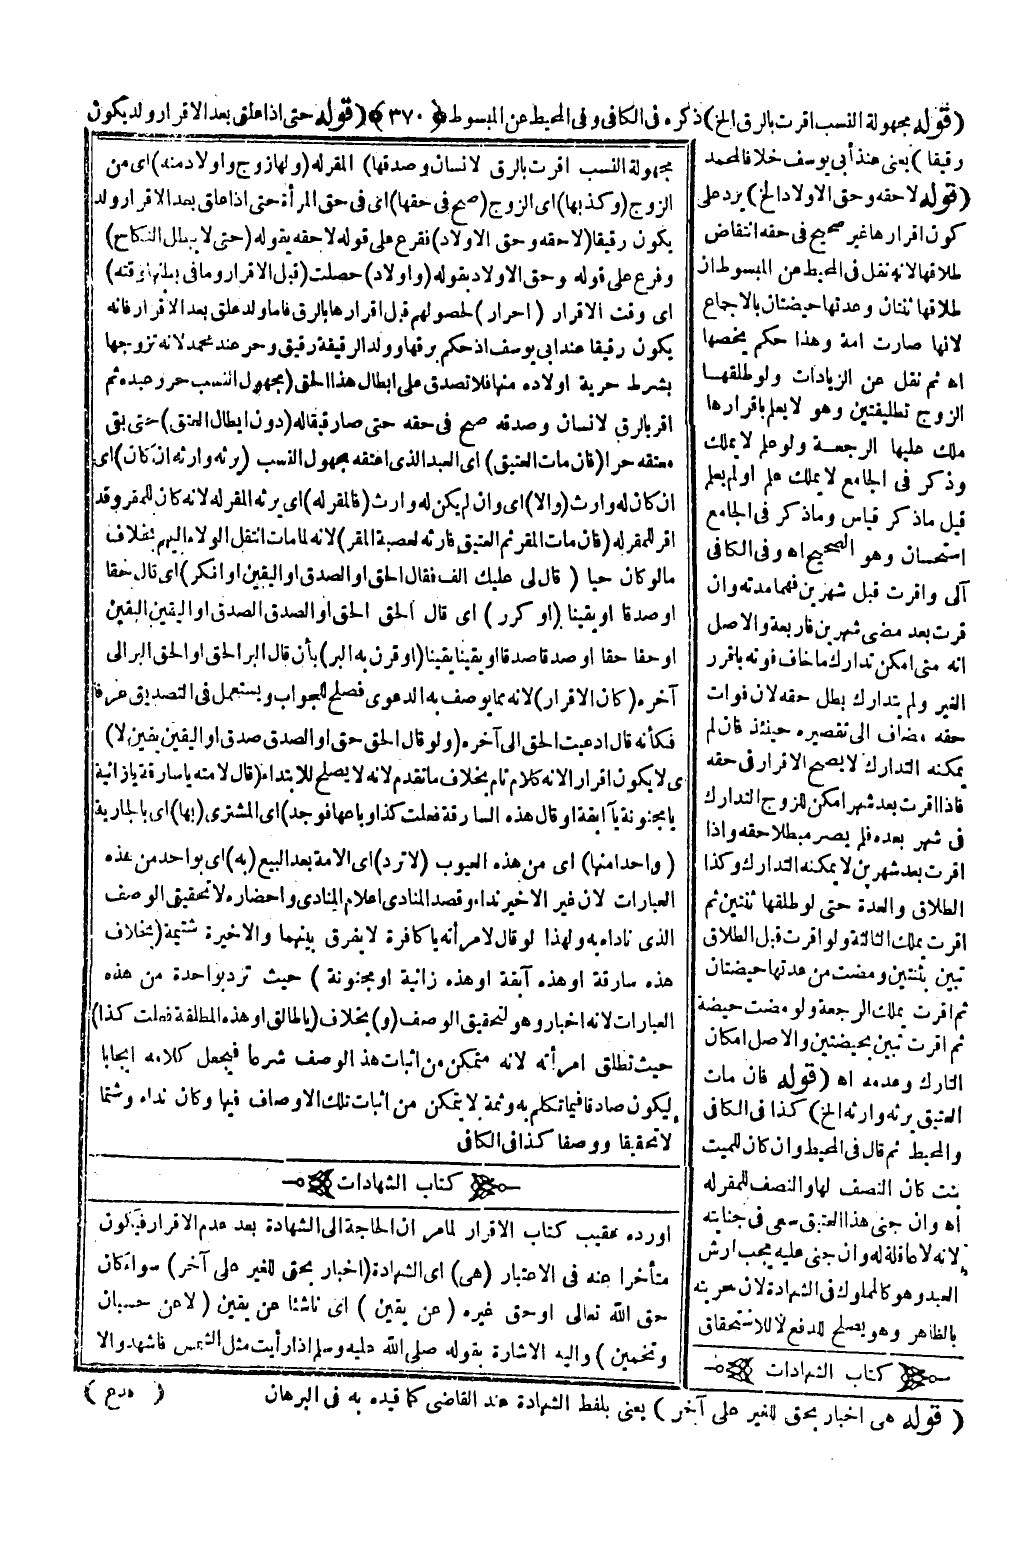 (قوله مجهولة النسب اقرت بالرق الخ) ذكره فى الكافى وفى المحيط عن المبسوط ﴿ ٣٧٠ ﴾ (قوله حتى اذا علق بعد الاقرار ولد يكون
رقيقا) يعنى عند أبى يوسف خلافا لمحمد
(قوله لا حقه وحق الاولاد الخ) يرد على
كون اقرارها غير صحيح فى حقه انتقاض
طلاقها لانه نقل فى المحيط عن المبسوط ان
طلاقها ثنتان وعدتها حيضتان بالاجماع
لانها صارت امة وهذا حكم يخصها
اه ثم نقل عن الزيادات ولو طلقهـا
الزوج تطليقتين وهو لا يعلم باقرارها
ملك عليها الرجعـة ولو علم لا يملك
وذكر فى الجامع لا يملك علم اولم يعلم
قيل ما ذكر قياس وما ذكر فى الجامع
استحسان وهو الصحيح اه وفى الكافى
آلى واقرت قبل شهرين فهما مدته وان
قرت بعد مضى شهرين فاربعة والاصل
انه متى امكن تدارك ما خاف فوته باقرر
الغير ولم يتدارك بطل حقه لان فوات
حقه مضاف الى تقصيره حينئذ فان لم
يمكنه التدارك لا يصح الاقرار فى حقه
فاذا اقرت بعد شهر امكن للزوج التدارك
فى شهر بعده فلم يصر مبطلا حقه واذا
اقرت بعد شهرين لا يمكنه التدارك وكذا
الطلاق والعدة حتى لو طلقها ثنتين ثم
اقرت يملك الثالثة ولو اقرت قبل الطلاق
تبين بثنتين ومضت من عدتها حيضتان
ثم اقرت يملك الرجعة ولو مضت حيضة
ثم اقرت تبين بحيضتين والاصل امكان
التارك وعدمه اه (قوله فان مات
العتيق يرثه وارثه الخ) كذا فى الكافى
والمحيط ثم قال فى المحيط وان كان للميت
بنت كان النصف لها والنصف للمقر له
اه وان جنى هذا العتيق سعى فى جنايته
لانه لا عاقلة له وان جنى عليه يجب ارش
العبد وهو كالمملوك فى الشهادة لان حريته
بالظاهر وهو يصلح للدفع لا للاستحقاق
كتاب الشهادات
مجهولة النسب اقرت بالرق لانسان وصدقها) المقر له (ولها زوج واولاد منه) اى من
الزوج (وكذبها) اى الزوج (صح فى حقها) اى فى حق المرأة حتى اذا علق بعد الاقرار ولد
يكون رقيقا (لا حقه وحق الاولاد) تفرع على قوله لا حقه بقوله (حتى لا يبطل النكاح)
وفرع على قوله وحق الاولاد بقوله (واولاد) حصلت (قبل الاقرار وما فى بطنها وقته)
اى وقت الاقرار (احرار) لحصولهم قبل اقرارها بالرق فاما ولد علق بعد الاقرار فانه
يكون رقيقا عند ابى يوسف اذ حكم برقها وولد الرقيقة رقيق وحر عند محمد لانه تزوجها
بشرط حرية اولاده منها فلا تصدق على ابطال هذا الحق (مجهول النسب حرر عبده ثم
اقر بالرق لانسان وصدقه صح فى حقه حتى صار رقيقا له (دون ابطال العتق) حتى بقى
معتقه حرا (فان مات العتيق) اى العبد الذى اعتقه مجهول النسب (يرثه وارثه ان كان) اى
ان كان له وارث (والا) اى وان لم يكن له وارث (فالمقر له) اى يرثه المقر له لانه كان للمقر وقد
اقر للمقر له (فان مات المقر ثم العتيق فارثه لعصبة المقر) لانه لما مات انتقل الولاء اليهم بخلاف
مالو كان حيا (قال لى عليك الف فقال الحق او الصدق او اليقين او انكر) اى قال حقا
او صدقا او يقينا (او كرر) اى قال الحق الحق او الصدق الصدق او اليقين اليقين
او حقا حقا او صدقا صدقا او يقينا يقينا (او قرن به البر) بأن قال البر الحق او الحق البر الى
آخره (كان الاقرار) لانه مما يوصف به الدعوى فصلح للجواب ويستعمل فى التصديق عرفا
فكأنه قال ادعيت الحق الى آخره (ولو قال الحق حق او الصدق صدق او اليقين يقين لا)
ى لا يكون اقرار الانه كلام تام بخلاف ما تقدم لانه لا يصلح للابتداء (قال لامته يا سارقة يا زانية
يا مجنونة يا آبقة او قال هذه السارقة فعلت كذا وباعها فوجد) اى المشترى (بها) اى بالجارية
(واحدا منها) اى من هذه العيوب (لا ترد) اى الامة بعد البيع (به) اى بواحد من هذه
العبارات لان غير الاخير نداء وقصد المنادى اعلام المنادى واحضاره لا تحقيق الوصف
الذى ناداه به ولهذا لو قال لامرأته يا كافرة لا يفرق بينهما والاخيرة شتيمة (بخلاف
هذه سارقة او هذه آبقة او هذه زانية او مجنونة) حيث ترد بواحدة من هذه
العبارات لانه اخبار وهو لتحقيق الوصف (و) بخلاف (يا طالق او هذه المطلقة فعلت كذا)
حيث تطلق امرأته لانه متمكن من اثبات هذ الوصف شرعا فيجعل كلامه ايجابا
ليكون صادقا فيما تكلم به وثمة لا يتمكن من اثبات تلك الاوصاف فيها وكان نداء وشتما
لا تحقيقا ووصفا كذا فى الكافى
كتاب الشهادات
اورده عقيب كتاب الاقرار لما مر ان الحاجة الى الشهادة بعد عدم الاقرار فيكون
متأخرا عنه فى الاعتبار (هى) اى الشهادة (اخبار بحق للغير على آخر) سواء كان
حق الله تعالى او حق غيره (عن يقين) اى ناشئا عن يقين (لا عن حسبان
وتخمين) واليه الاشارة بقوله صلى الله عليه وسلم اذا رأيت مثل الشمس فاشهد والا
(قوله هى اخبار بحق للغير على آخر) يعنى بلفظ الشهادة عند القاضى كما قيده به فى البرهان
(فدع)